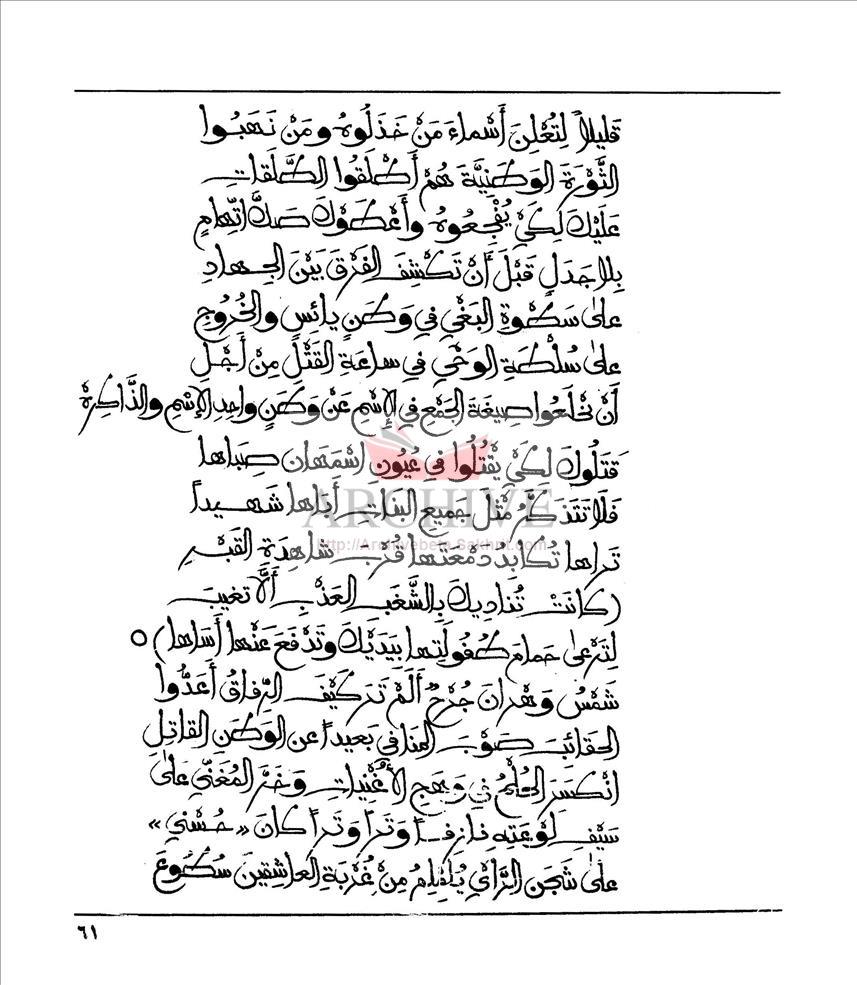 قَليلاً لِتُعْلِنَ أَسْماءَ مَنْ خَذَلُوهُ وَمَنْ نَهَبُوا
الثَّوْرَةَ الوَطَنِيَّةَ هُمْ أَطْلَقُوا الطَّلَقاتِ
عَلَيْكَ لِكَيْ يُفْجِعُوهُ وأَعْطَوْكَ صَكَّ اتِّهامٍ
بِلا جَدَلٍ قَبْلَ أَنْ تَكْشِفَ الفَرْقَ بَيْنَ الجِهادِ
عَلىٰ سَطْوَةِ البَغْيِ في وَطَنٍ يائِسٍ والخُرُوجِ
عَلىٰ سُلْطَةِ الوَحْيِ في ساعَةِ القَتْلِ مِنْ أَجْلِ
أَنْ تَخْلَعُوا صِيغَةَ الجَمْعِ في الإسْمِ عَنْ وَطَنٍ واحِدِ الإسْمِ والذَّاكِرَةْ
قَتَلُوكَ لِكَيْ يَقْتُلُوا في عُيُونِ اسْمَهان صِباها
فَلا تَتَذَكَّرُ مِثْلَ جَميعِ البَناتِ أَباها شَهيداً
تَراها تُكابِدُ دَمْعَتَها قُرْبَ شاهِدَةِ القَبْرِ
(كانَتْ تُنادِيكَ بِالشَّغَبِ العَذْبِ أَلَّا تَغيبَ
لِتَرْعىٰ حَمامَ طُفُولَتِها بِيَدَيْكَ وَتَدْفَعَ عَنْها أَساها) ٥
شَمْسُ وَهْرانَ جُرْحٌ أَلَمْ تَرَ كَيْفَ الرِّفاقُ أَعَدُّوا
الحَقائِبَ صَوْبَ المَنافي بَعيداً عنِ الوَطَنِ القاتِلِ
انْكَسَرَ الحُلْمُ في وَهَجِ الأُغْنِياتِ وَخَرَّ المُغَنّي عَلىٰ
سَيْفِ لَوْعَتِهِ نازِفاً وَتَراً وَتَراً كانَ «حُسْني»
عَلىٰ شَجَنِ الرَّايِ يُلَمْلِمُ مِنْ غُرْبَةِ العاشِقينَ سُطُوعَ
٦١
ARCHIVE
http://Archivebeta.Sakhrit.com